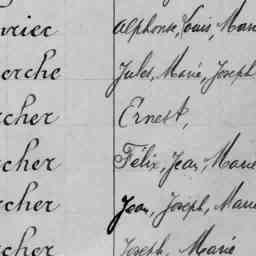 vriec Alphonse, Louis, Marie
erche Jules, Marie, Joseph
rcher Ernest,
rcher Félix, Jean, Marie
rcher Jean, Joseph, Marie
rcher Joseph, Marie